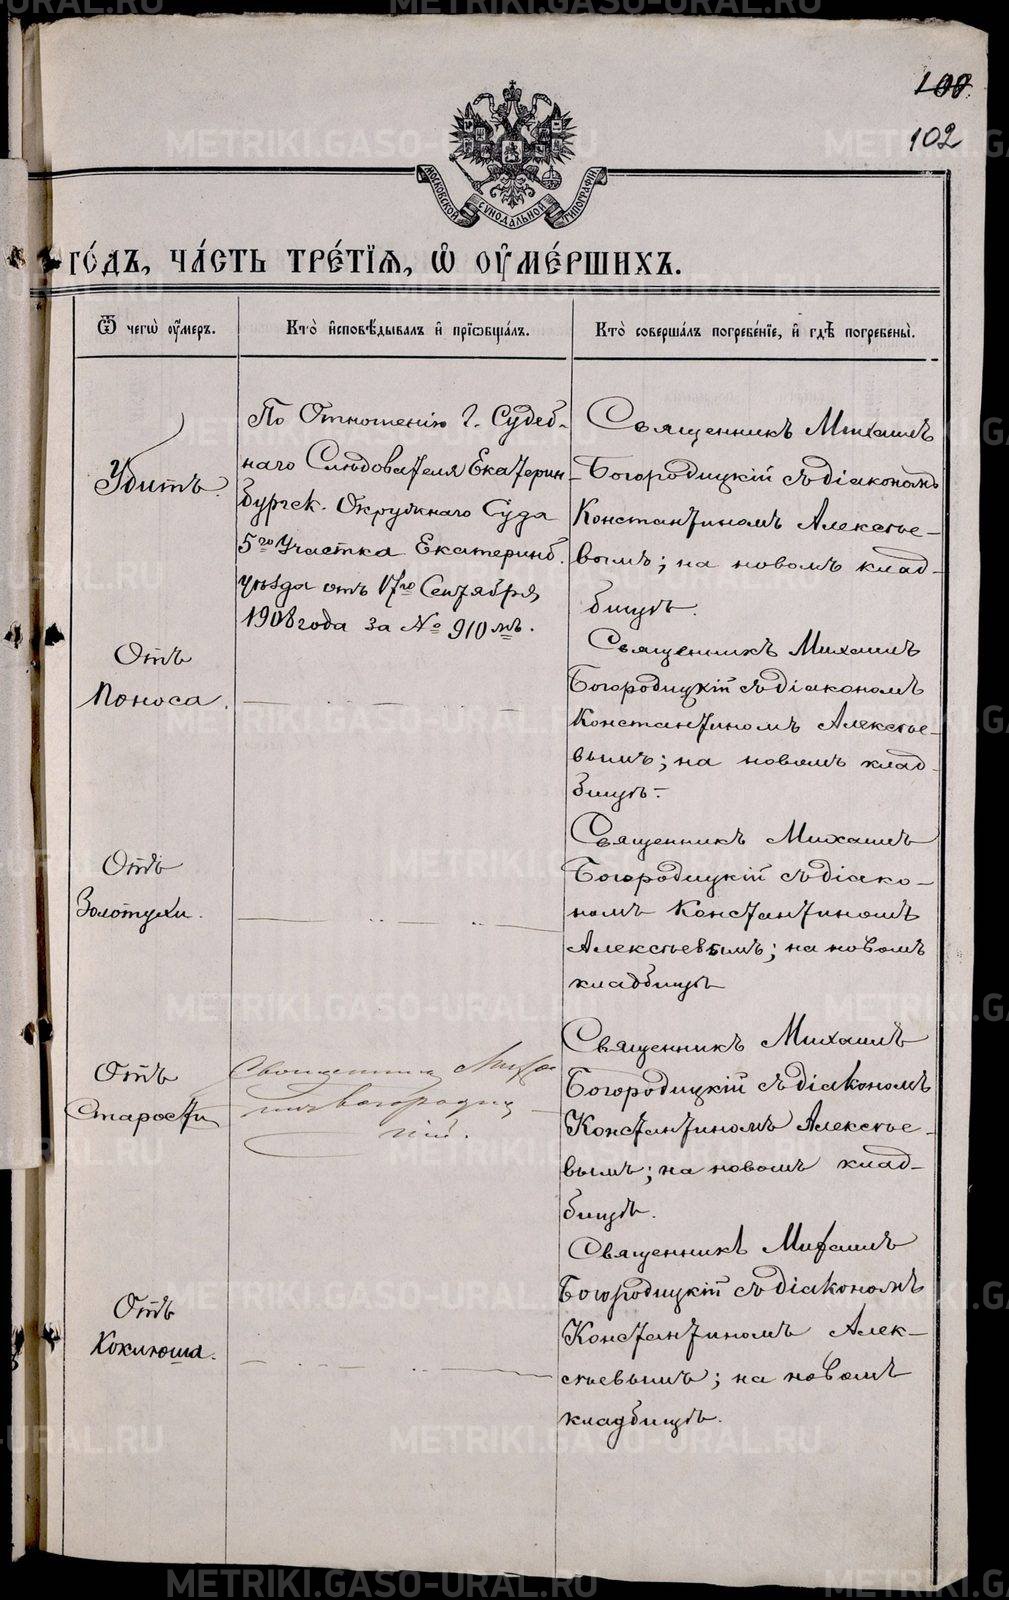 100.
102
МОСКОВСКОЙ СѴНОДАЛЬНОЙ ТИПОГРАФІИ
ГО́ДЪ, ЧА́СТЬ ТРЕ́ТЇѦ, Ѡ҆ ОУ҆МЕ́РШИХЪ.
Ѿ чегѡ̀ оу҆́меръ.
Кто̀ и҆сповѣ́дывалъ и҆ прїѡбща́лъ.
Кто̀ соверша́лъ погребе́нїе, и҆ гдѣ̀ погребены̀.
Убитъ.
По Отношенію Г. Судеб-
наго Слѣдователя Екатерин-
бургск. Окружнаго Суда
5го Участка Екатеринб.
уѣзда отъ 17го Сентября
1908 года за № 910 мъ.
Священникъ Михаилъ
Богородицкій съ діакономъ
Константиномъ Алексѣе-
вымъ; на новомъ клад-
бищѣ.
Отъ
поноса.
Священникъ Михаилъ
Богородицкій съ діакономъ
Константиномъ Алексѣе-
вымъ; на новомъ клад-
бищѣ.
Отъ
Золотухи.
Священникъ Михаилъ
Богородицкій съ діако-
номъ Константиномъ
Алексѣевымъ; на новомъ
кладбищѣ
Отъ
Старости
Священникъ Миха
илъ Богородиц-
кій.
Священникъ Михаилъ
Богородицкій съ діакономъ
Константиномъ Алексѣе-
вымъ; на новомъ клад-
бищѣ.
Отъ
Коклюша.
Священникъ Михаилъ
Богородицкій съ діакономъ
Константиномъ Алек-
сѣевымъ; на новомъ
кладбищѣ.
METRIKI.GASO-URAL.RU